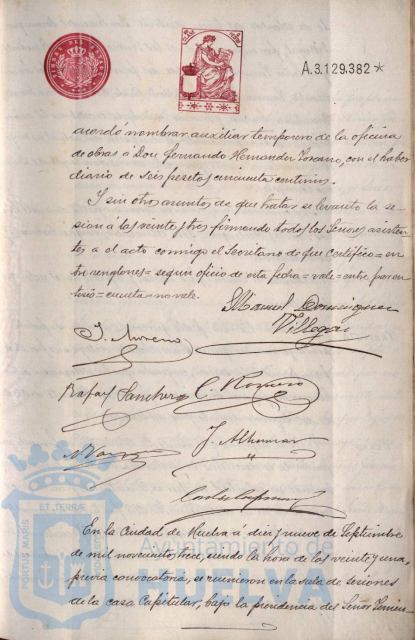 A.3.129.382*
acordó nombrar auxiliar temporero de la oficina
de obras á Don Fernando Hernandez Lozano, con el haber
diario de seis pesetas cincuenta centimos.
Y sin otros asuntos de que tratar se levantó la se-
sion á las veinte y tres firmando todos los Señores asisten-
tes a el acto conmigo el Secretario de que certifico = en-
tre renglones = segun oficio de esta fecha = vale = entre paren-
tesis = cuenta = no vale.
Manuel Dominguez
Villegas
J. Moreno
Rafael Sanchez C. Romero
J. Alhumar
En la Ciudad de Huelva á diez y nueve de Septiembre
de mil novecientos trece, siendo la hora de las veinte y una,
previa convocatoria, se reunieron en la sala de sesiones
de la casa Capitular, bajo la presidencia del Señor Tenien-
PORTUS MARIS
ET TERRÆ
Ayuntamiento de
HUELVA